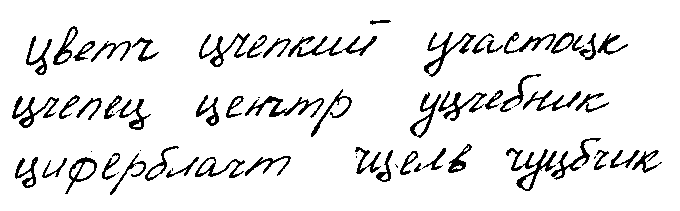 цветч цчепкий участоцк
цчепец ценчтр уцчебник
циферблачт чщель чуцбчик